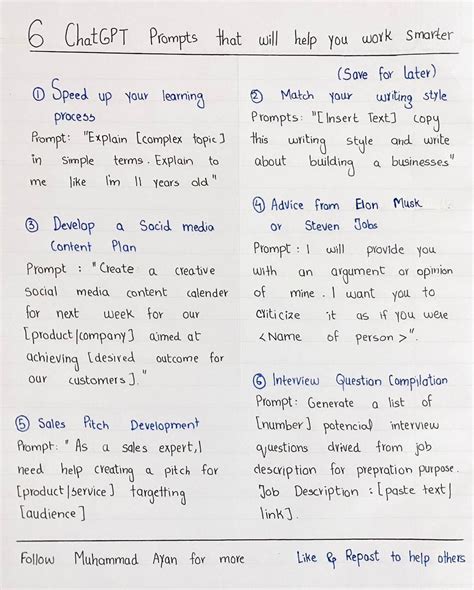 6 ChatGPT Prompts that will help you work smarter
(Save for later)
① Speed up your learning
process
Prompt: "Explain [complex topic]
in simple terms. Explain to
me like I'm 11 years old"
② Match your writing style
Prompts: "[Insert Text] copy
this writing style and write
about building a businesses"
③ Develop a Socid media
Content Plan
Prompt : "Create a creative
social media content calender
for next week for our
[product|company] aimed at
achieving [desired outcome for
our customers]."
④ Advice from Elon Musk
or Steven Jobs
Prompt : I will provide you
with an argument or opinion
of mine. I want you to
criticize it as if you were
<Name of person>".
⑤ Sales Pitch Development
Prompt: "As a sales expert, I
need help creating a pitch for
[product|service] targetting
[audience]
⑥ Interview Question Compilation
Prompt: Generate a list of
[number] potencial interview
questions drived from job
description for prepration purpose.
Job Description : [paste text|
link].
Follow Muhammad Ayan for more
Like & Repost to help others